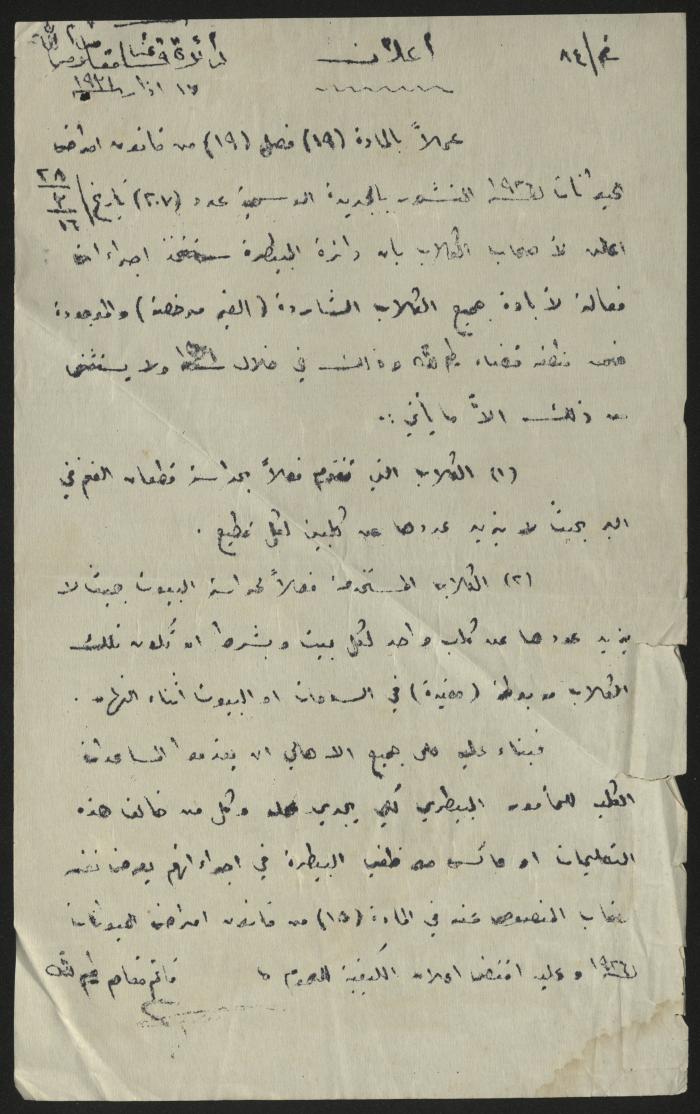 نمرة/٨٤
اعلان
١٦ اذار سنة ١٩٣١
عملاً بالمادة (١٩) فصل (١٩) من قانون امراض
الحيوانات لسنة المنشور بالجريدة الرسمية عدد (٢٠٧) تاريخ
اعلن لأصحاب الكلاب بان دائرة البيطرة ستتخذ اجراءات
فعالة لأبادة جميع الكلاب الشاردة (الغير مرخصة) والموجودة
ضمن منطقة قضاء وذلك في خلال ولا يستثنى
من ذلك الاّ ما يأتي :.
(١) الكلاب التي تقوم فعلاً بحراسة قطعان الغنم في
البر بحيث لا يزيد عددها عن كلبين لكل قطيع .
(٢) الكلاب المستخدمة فعلاً لحراسة البيوت بحيث لا
يزيد عددها عن كلب واحد لكل بيت وبشرط ان تكون تلك
الكلاب مربوطة (مقيدة) في الساحات او البيوت اثناء النهار .
فبناء عليه على جميع الاهالي ان يقدموا المساعدات
للمأمور البيطري لكي يجري عمله وكل من خالف هذه
التعليمات او عاكس موظفي البيطرة في اجراءاتهم يعرض نفسه
للعقاب المنصوص عنه في المادة (١٥) من قانون امراض الحيوانات
لسنة وعليه اقتضى اعلان الكيفية للعموم
قائمقام